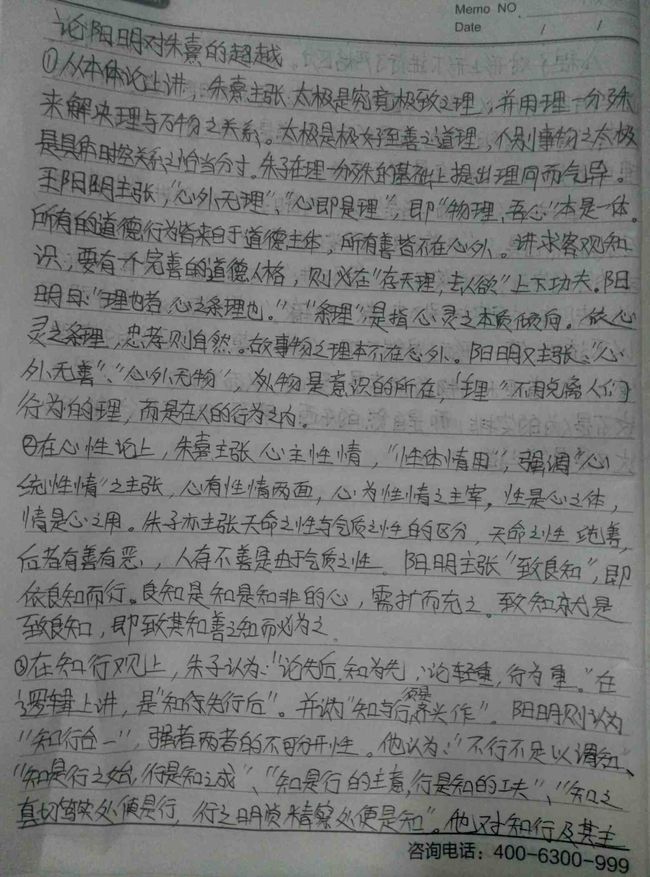 Memo NO.
Date / /
论阳明对朱熹的超越
①从本体论上讲，朱熹主张太极是究竟极致之理，并用理一分殊
来解决理与万物之关系。太极是极好至善之道理，个别事物之太极
是具体时空关系之恰当分寸。朱子在理一分殊的基础上提出理同而气异。
王阳明主张，"心外无理"、"心即是理"，即"物理、吾心"本是一体。
所有的道德行为皆来自于道德主体，所有善皆不在心外。讲求客观知
识，要有一个完善的道德人格，则必在"存天理，去人欲"上下功夫。阳
明曰："理也者，心之条理也。""条理"是指心灵之本质倾向。依心
灵之条理，忠孝则自然。故事物之理本不在心外。阳明又主张："心
外无善"、"心外无物"、外物是意识的所在，"理"不用脱离人们
行为的理，而是在人的行为之内。
②在心性论上，朱熹主张心主性情，"性体情用"，强调"心
统性情"之主张，心有性情两面，心为性情之主宰，性是心之体，
情是心之用。朱子亦主张天命之性与气质之性的区分，天命之性 纯善，
后者有善有恶，人有不善是由于气质之性。阳明主张"致良知"，即
依良知而行。良知是知是知非的心，需扩而充之。致知就是
致良知，即致其知善之知而必为之
③在知行观上，朱子认为："论先后，知为先，论轻重，行为重。"在
逻辑上讲，是"知先行后"。并认为"知与行须是齐头作"。阳明则认为
"知行合一"，强者两者的不可分开性。他认为："不行不足以谓知、
"知是行之始，行是知之成"、"知是行的主意，行是知的工夫"、"知之
真切笃实处便是行，行之明觉精察处便是知"。他对知行及其主
咨询电话：400-6300-999